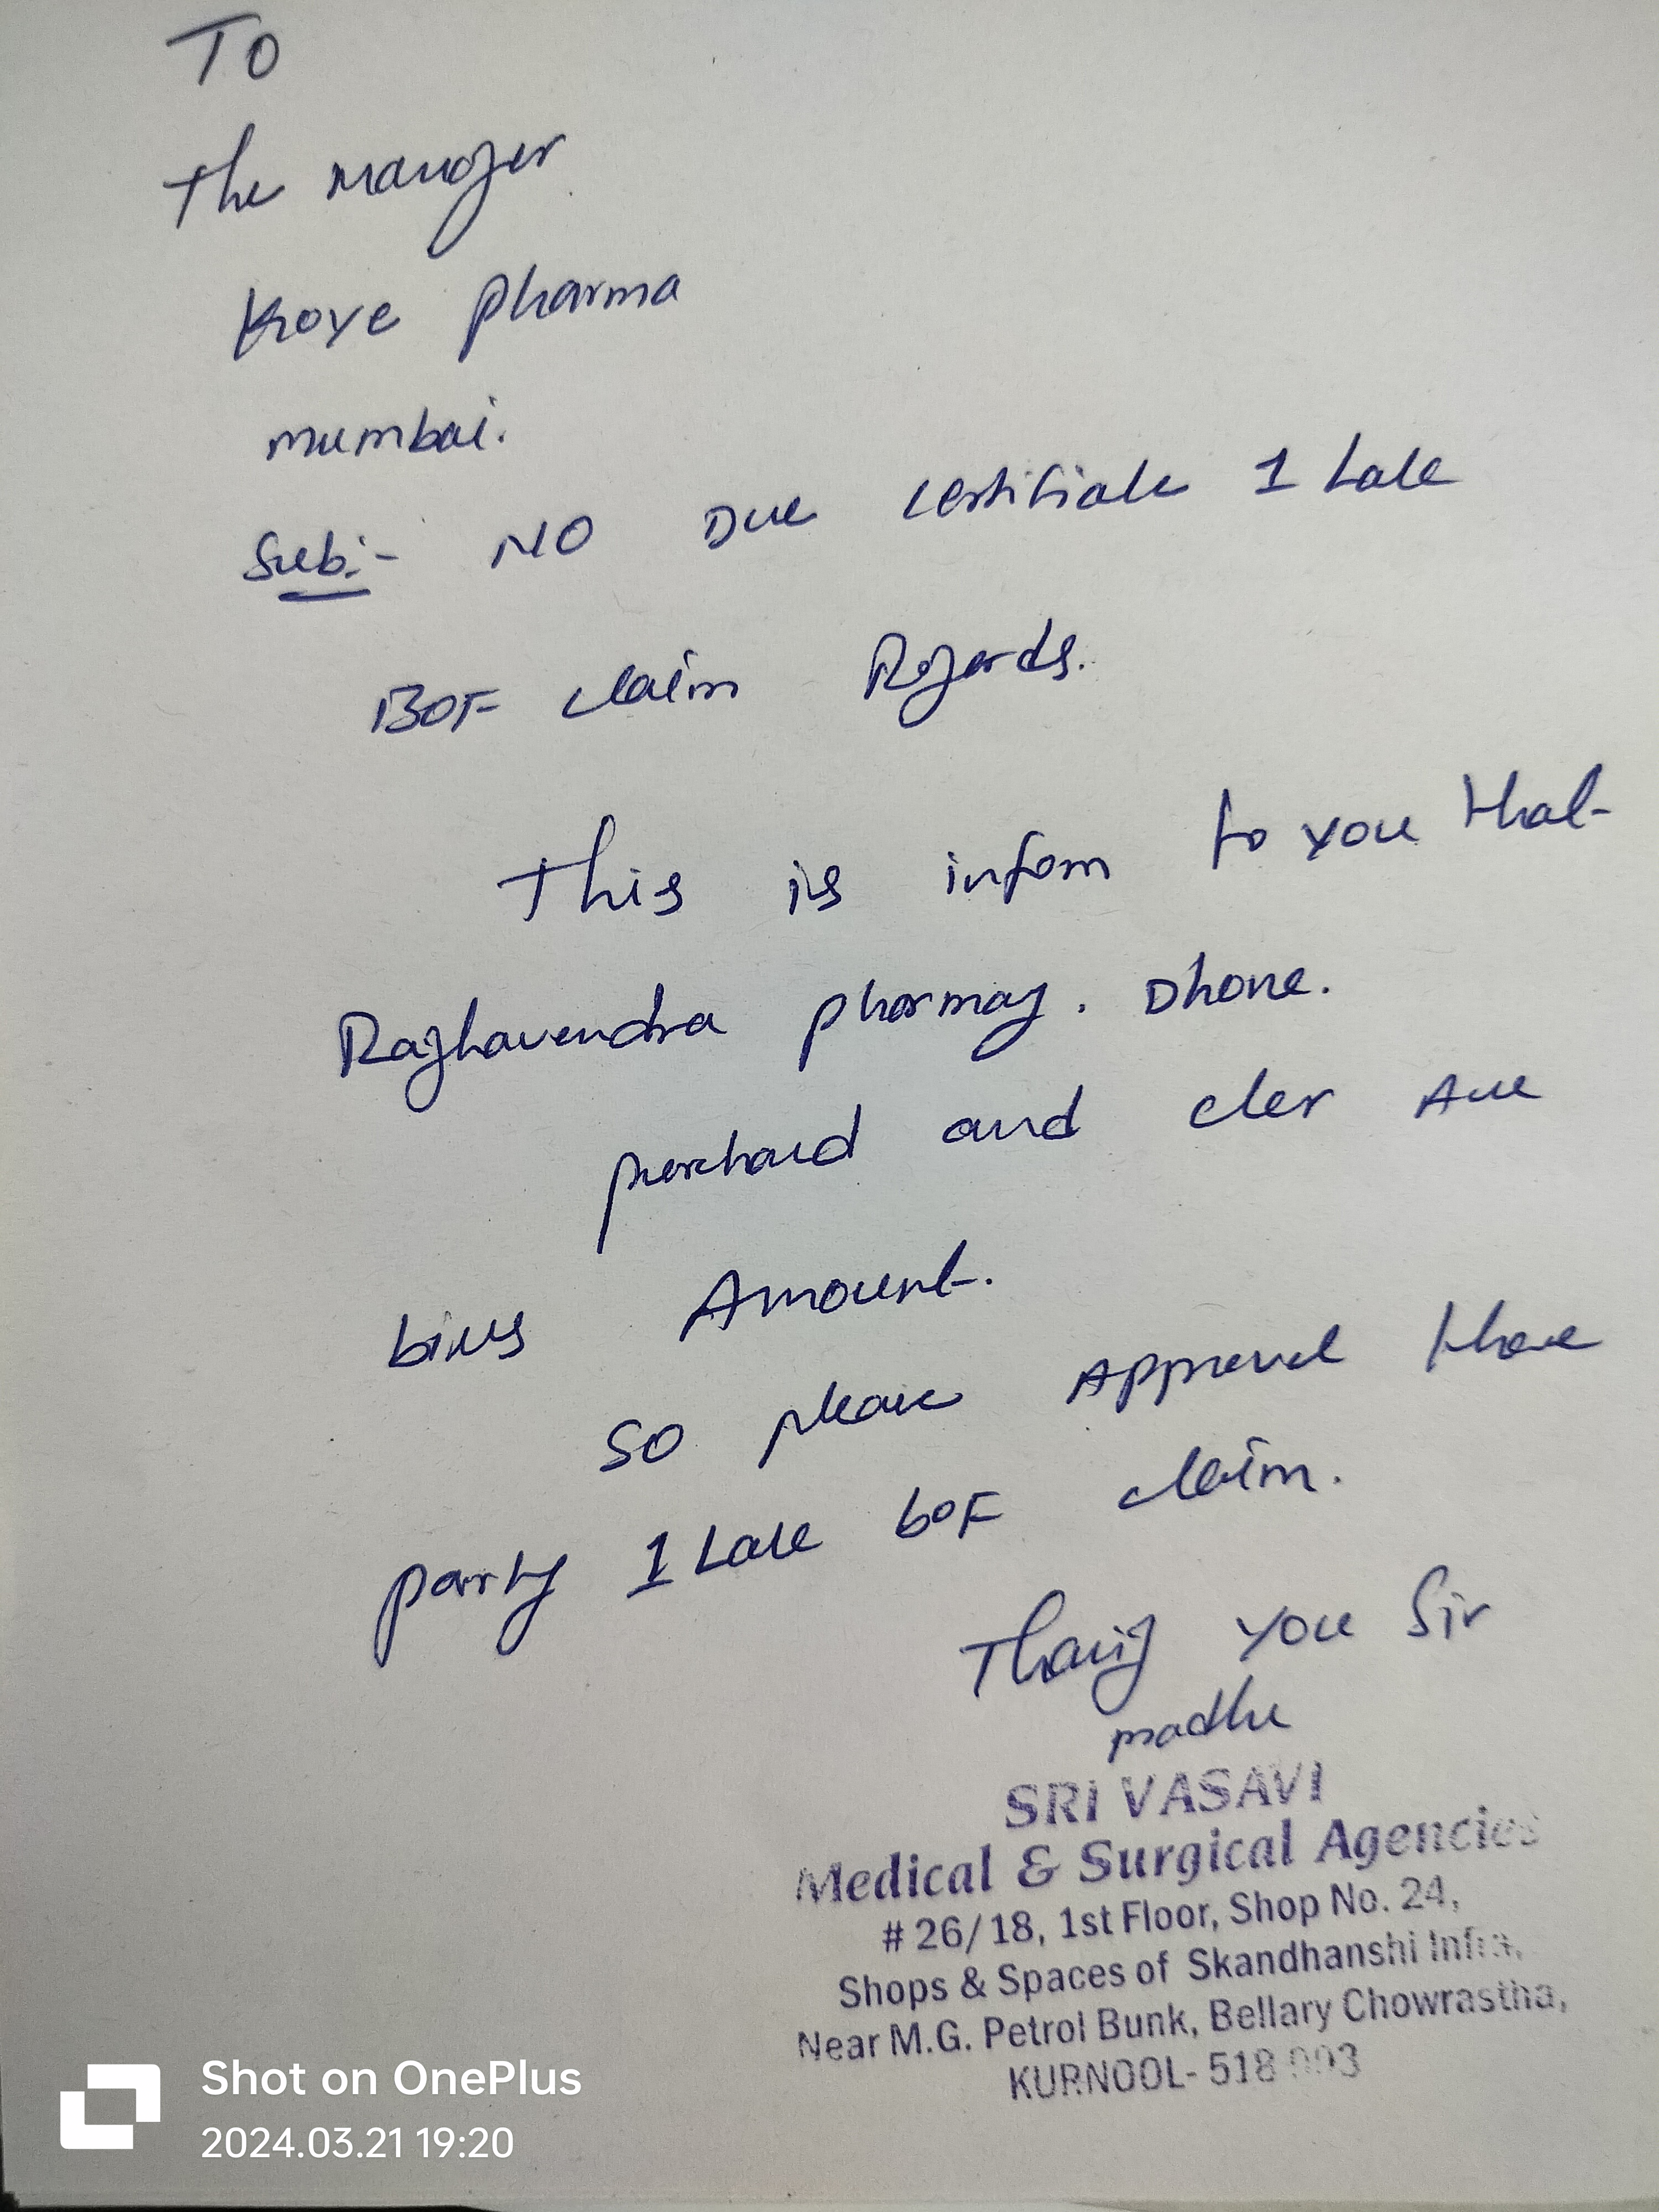 To
The manager
Koye pharma
mumbai.
Sub:- NO Due certificate 1 Lake
BOF claim Regards.
This is inform to you that
Raghavendra pharmacy. Dhone.
and cler All
bills Amount.
So please Approval these
party 1 Lake BOF claim.
Thanq you Sir
madhu
SRI VASAVI
Medical & Surgical Agencies
# 26/18, 1st Floor, Shop No. 24,
Shops & Spaces of Skandhanshi Infra,
Near M.G. Petrol Bunk, Bellary Chowrastha,
KURNOOL- 518 003
Shot on OnePlus
2024.03.21 19:20